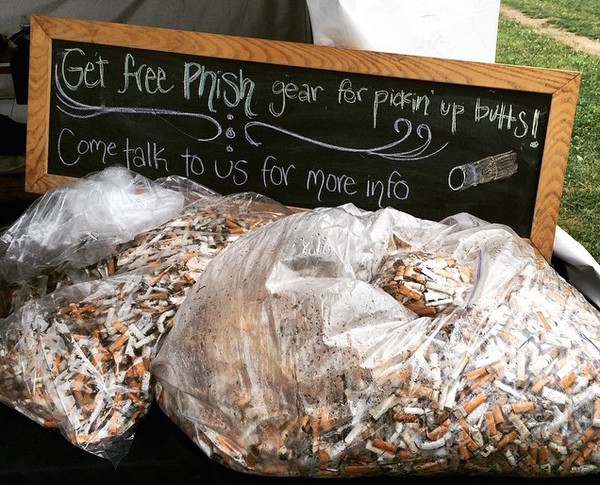 Get free Phish gear for pickin' up butts!
Come talk to us for more info